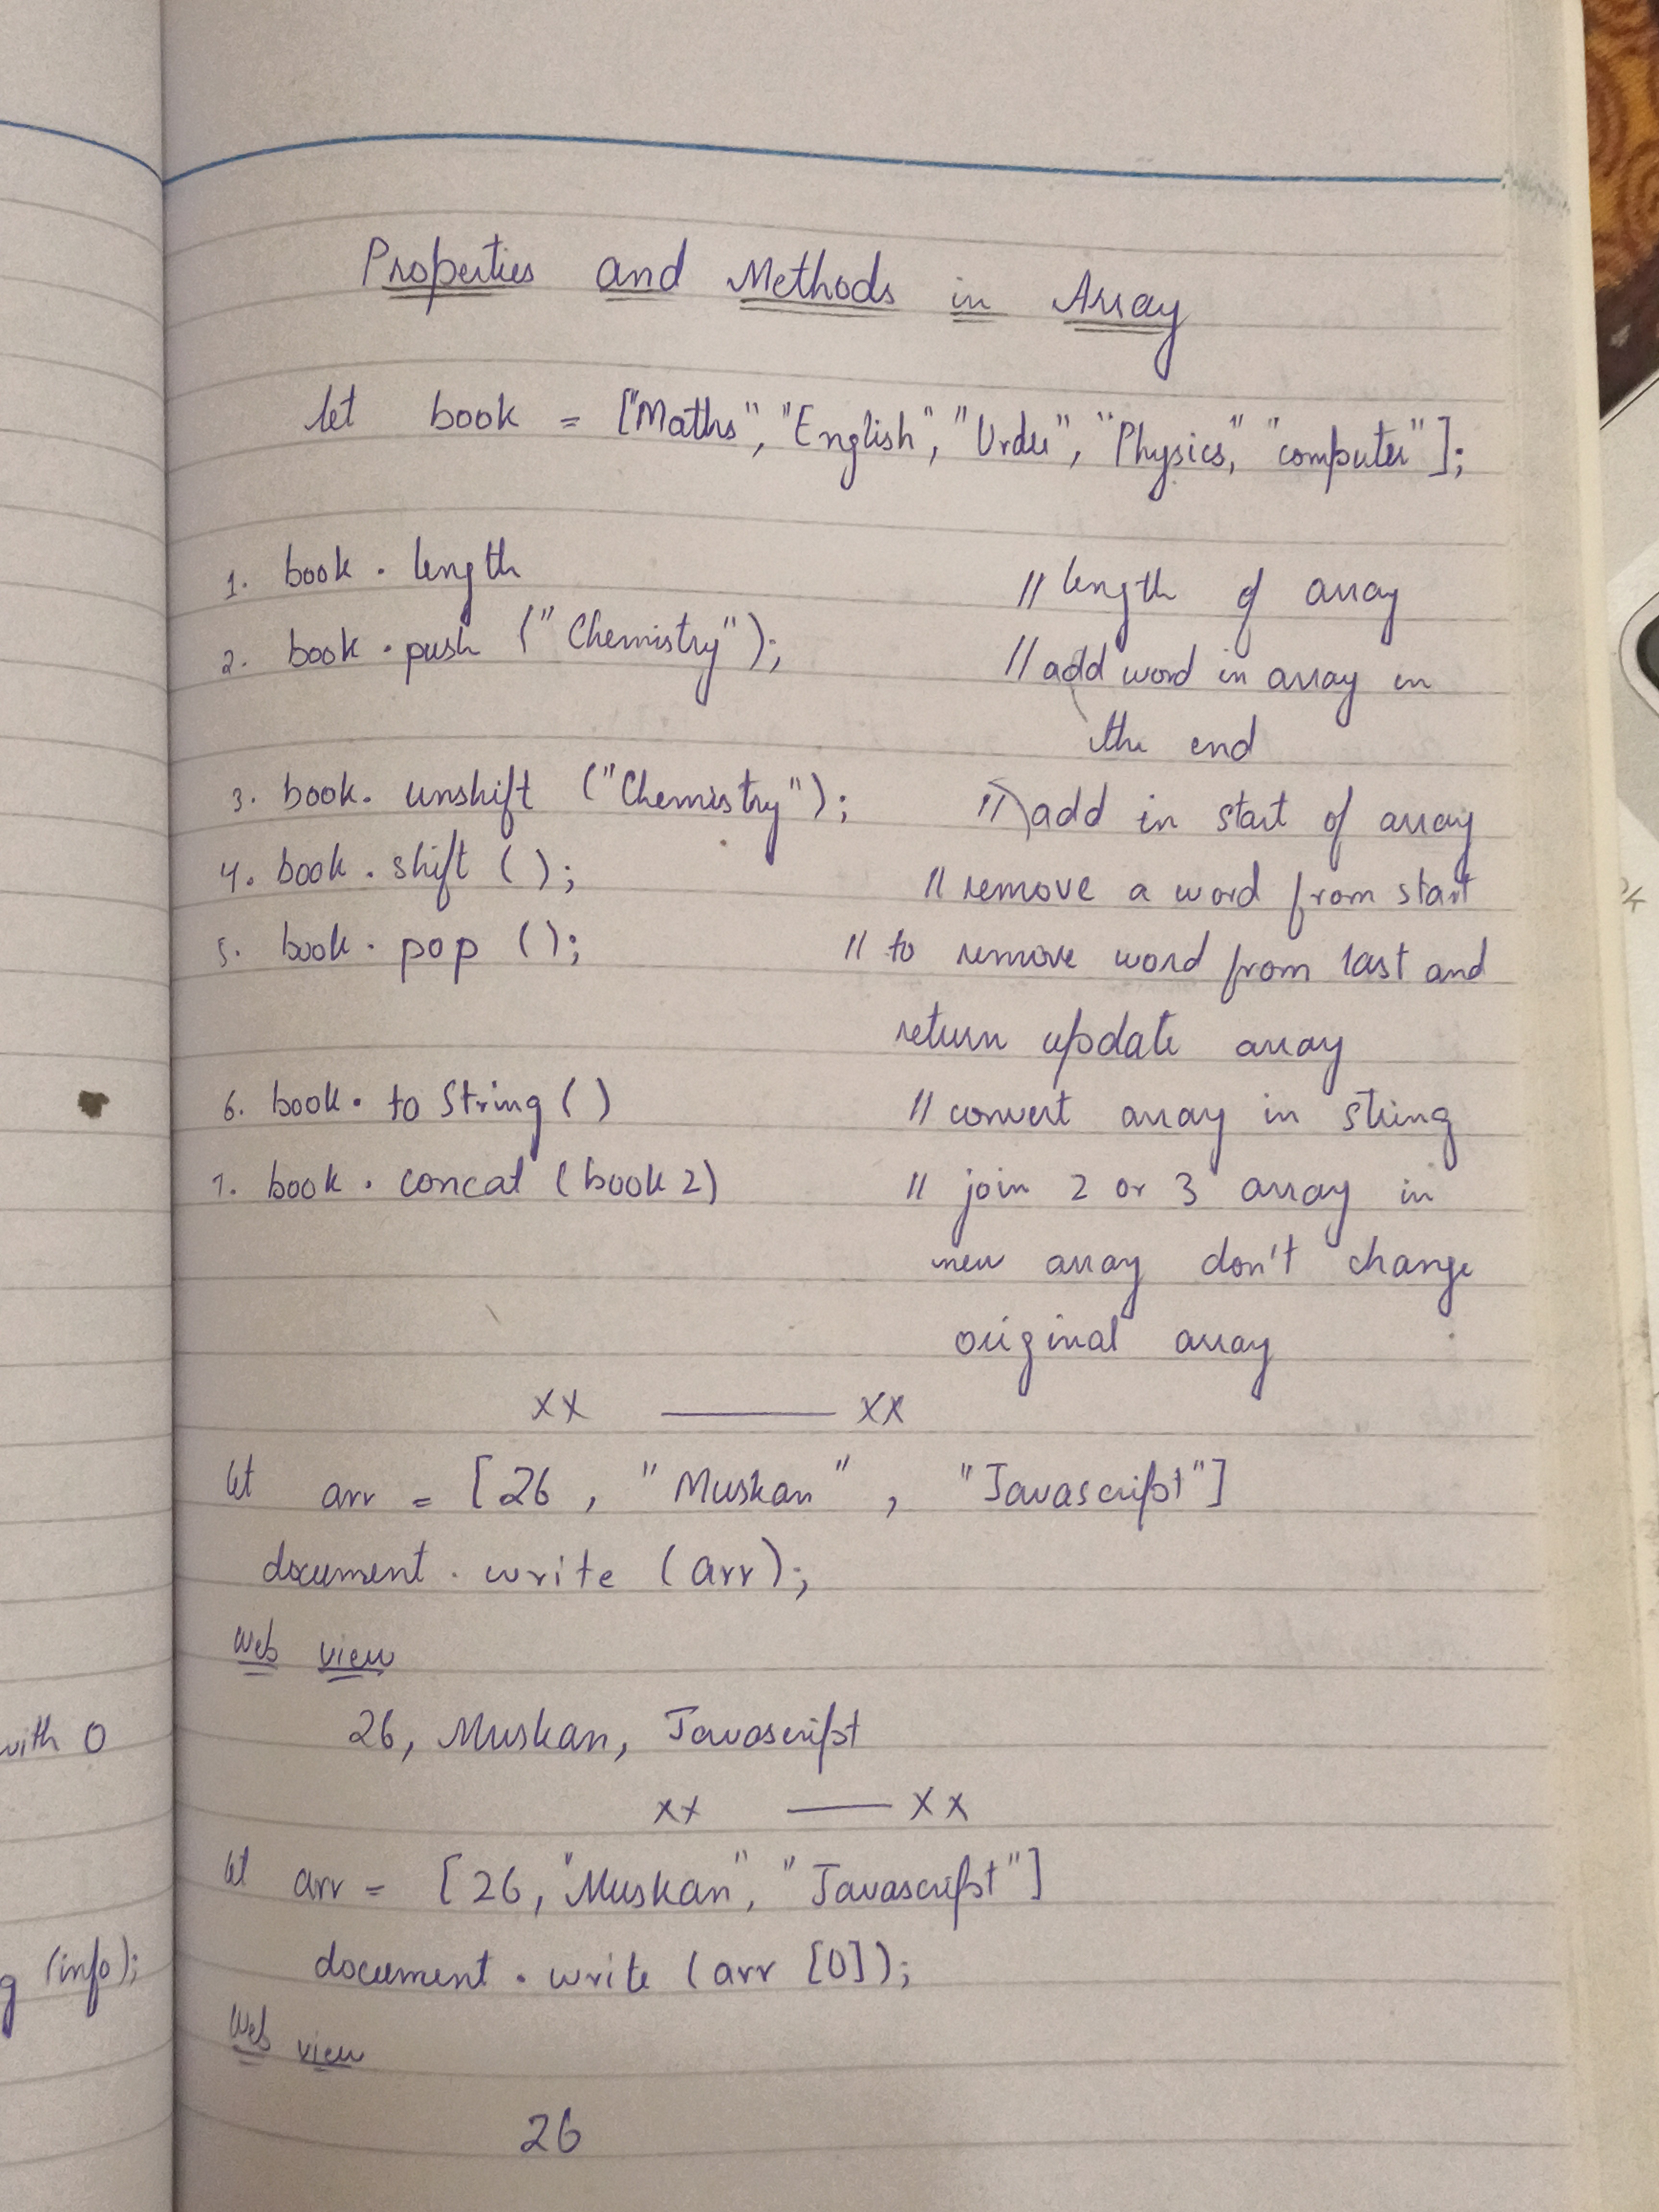 Properties and Methods in Array
let book = ["Maths", "English", "Urdu", "Physics," "computer"];
1. book . length // length of array
2. book . push ("Chemistry"); // add word in array in
the end
3. book. unshift ("Chemistry"); // add in start of array
4. book . shift ( ); // remove a word from start
5. book . pop ( ); // to remove word from last and
return update array
6. book . to String ( ) // convert array in string
7. book . concat (book 2) // join 2 or 3 array in
new array don't change
original array
xx —— xx
let arr = [26 , "Muskan" , "Javascript"]
document . write (arr);
Web view
26, Muskan, Javascript
xx —— xx
let arr = [26, "Muskan", "Javascript"]
document . write (arr [0]);
Web view
26
with 0
(info);